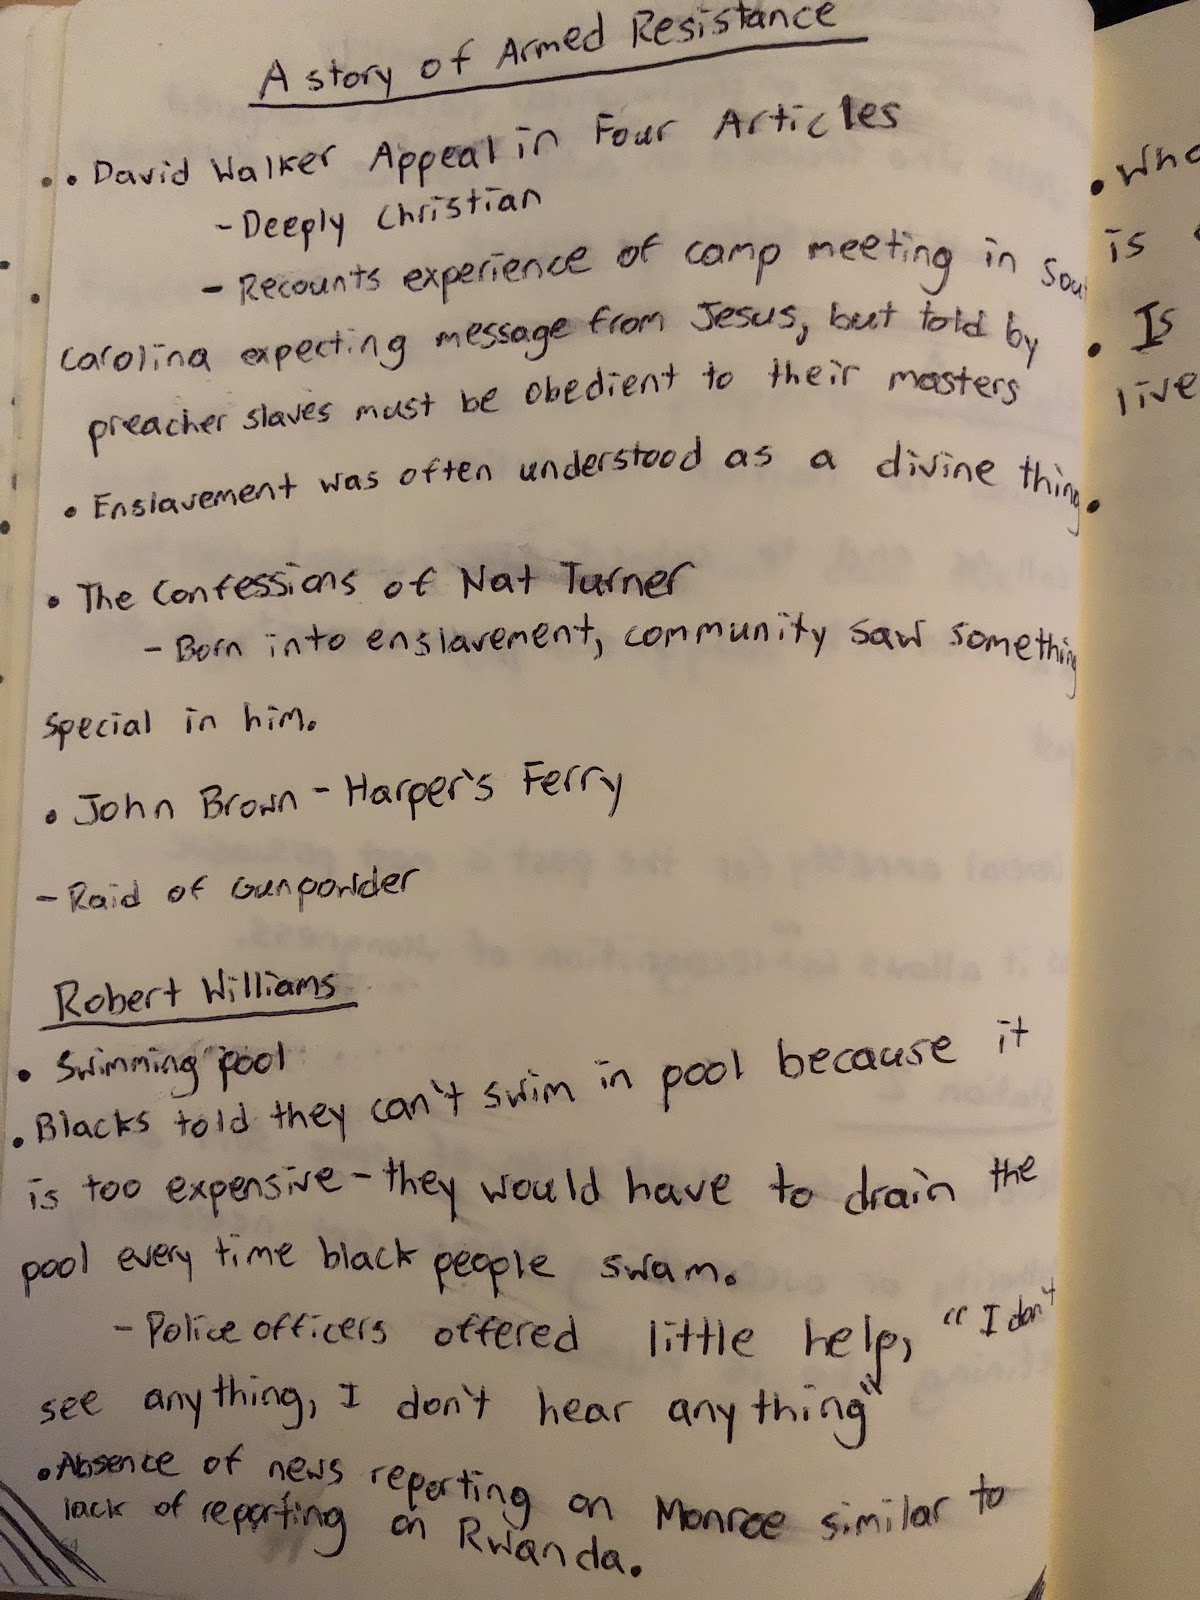 A story of Armed Resistance
• David Walker Appeal in Four Articles
- Deeply Christian
- Recounts experience of camp meeting in Sou
Carolina expecting message from Jesus, but told by
preacher slaves must be obedient to their masters
• Enslavement was often understood as a divine thing
• The Confessions of Nat Turner
- Born into enslavement, community saw something
special in him.
• John Brown - Harper's Ferry
- Raid of Gunpowder
Robert Williams
• Swimming pool
• Blacks told they can't swim in pool because it
is too expensive - they would have to drain the
pool every time black people swam.
- Police officers offered little help, "I don't
see anything, I don't hear anything"
• Absence of news reporting on Monroe similar to
lack of reporting on Rwanda.
• Who
is
• Is
live
•